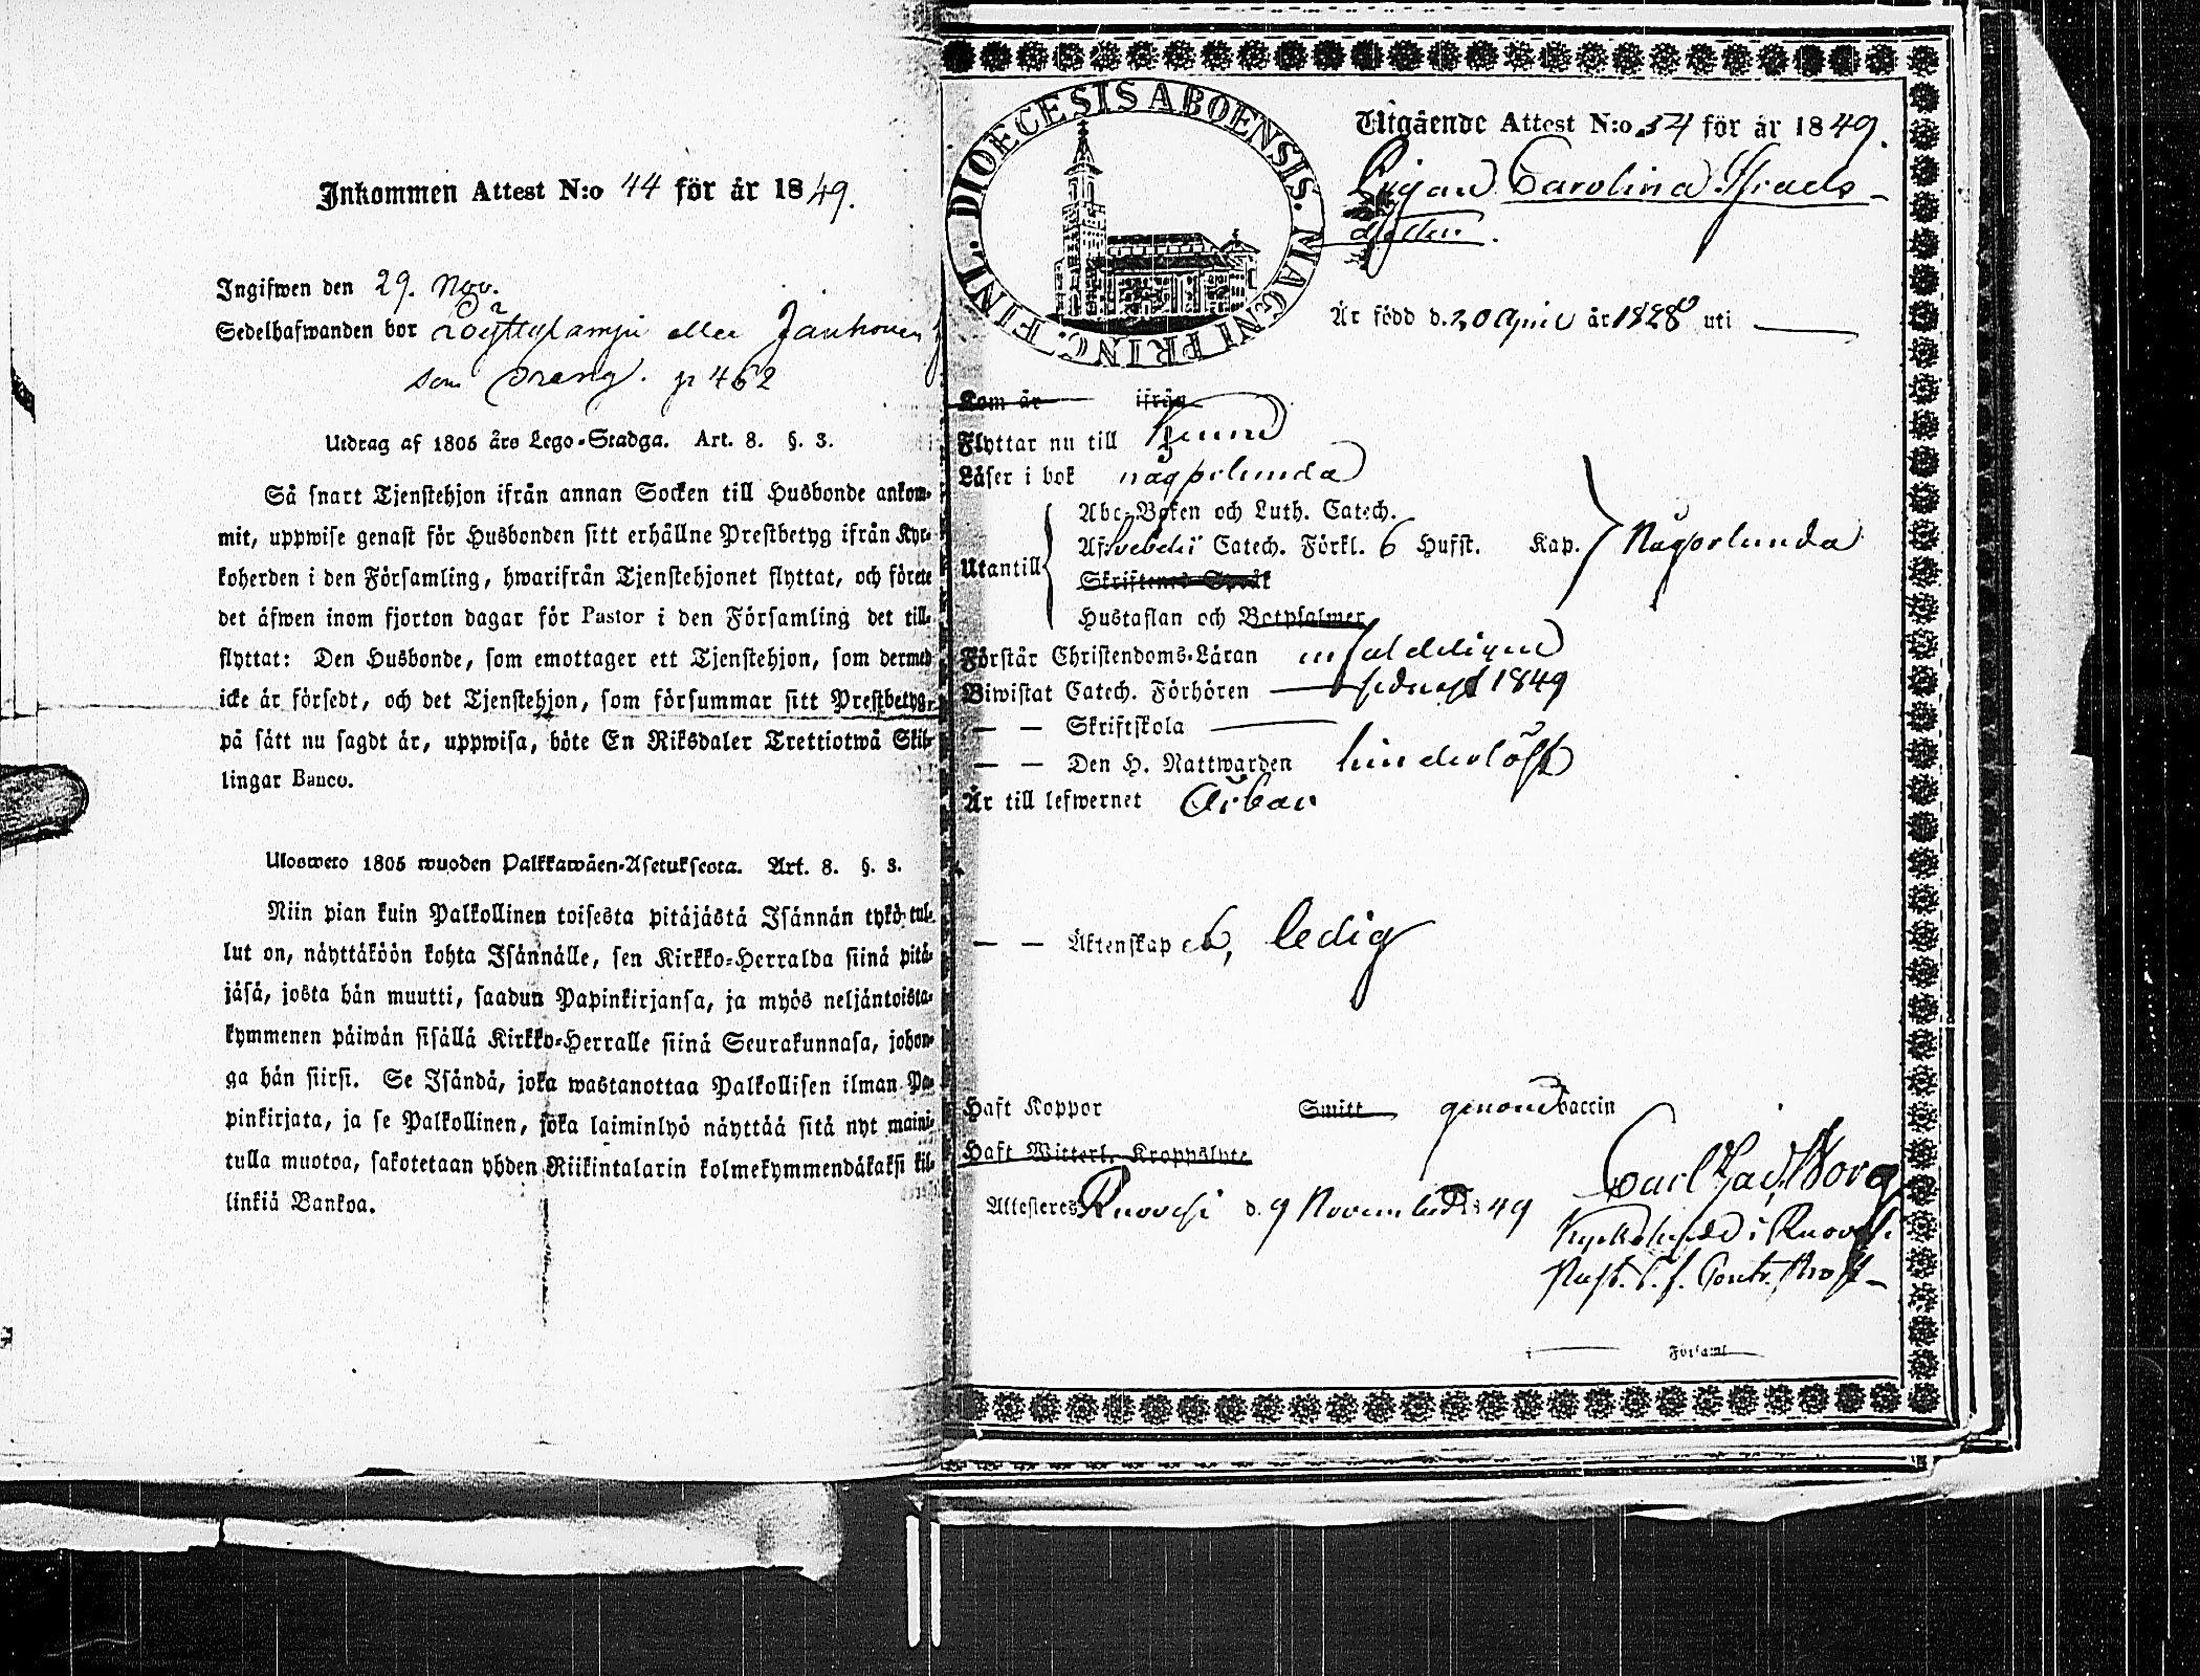 Inkommen Attest N:o 44 för år 1849.
Ingifwen den 29. Nov.
Sedelhafwanden bor eller
som p 462
Utdrag af 1805 års Lego-Stadga. Art. 8. §. 3.
Så snart Tjenstehjon ifrån annan Socken till Husbonde ankom-
mit, uppwise genast för Husbonden sitt erhållne Prestbetyg ifrån Kyr-
koherden i den Församling, hwarifrån Tjenstehjonet flyttat, och förete
det äfwen inom fjorton dagar för Pastor i den Församling det till-
flyttat: Den Husbonde, som emottager ett Tjenstehjon, som dermed
icke är försedt, och det Tjenstehjon, som försummar sitt Prestbetyg,
på sätt nu sagdt är, uppwisa, böte En Riksdaler Trettiotwå Skil-
lingar Banco.
Ulosweto 1805 wuoden Palkkawäen-Asetuksesta. Art. 8. §. 3.
Niin pian kuin Palkollinen toisesta pitäjästä Isännän tykö tul-
lut on, näyttäköön kohta Isännälle, sen Kirkko-Herralda siinä pitä-
jäsä, josta hän muutti, saadun Papinkirjansa, ja myös neljäntoista-
kymmenen päiwän sisällä Kirkko-Herralle siinä Seurakunnasa, johon-
ga hän siirsi. Se Isändä, joka wastanottaa Palkollisen ilman Pa-
pinkirjata, ja se Palkollinen, joka laiminlyö näyttää sitä nyt maini-
tulla muotoa, sakotetaan yhden Riikintalarin kolmekymmendäkaksi kil-
linkiä Bankoa.
DIOECESIS ABOENSIS. MAGNI PRINC. FINL.
Utgående Attest N:o 34 för år 1849.
Pigan Carolina Israels-
dotter.
Är född d. 20 April år 1828 uti
Kom år ifrån
Flyttar nu till
Läser i bok någorlunda
Abc-Boken och Luth. Catech.
Utantill Afsvebelii Catech. Förkl. 6 Hufst. Kap. Någorlunda
Skriftenes Språk
Hustaflan och Botpsalmer
Förstår Christendoms-Läran enfaldeligen
Biwistat Catech. Förhören sednast 1849
— — Skriftskola
— — Den H. Nattwarden hinderlöst
Är till lefwernet Ärbar
— — Äktenskapet, ledig
Haft Koppor Smitt genom Vaccin
Haft Witterl. Kroppslyte
Attesteres Ruovesi d. 9 November 1849
Carl Zach. Borg
Kyrkoherde i Ruovesi
Prost. Contr. Prost
i Församl.